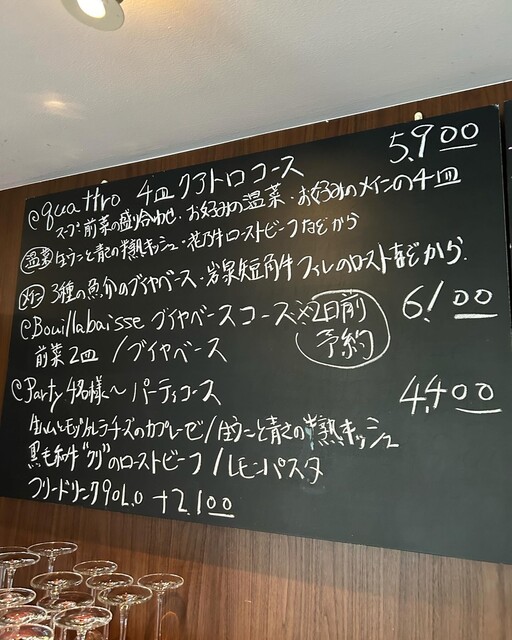 @quattro 4皿 クアトロコース 5,900
スープ・前菜の盛り合わせ・お好みの温菜・お好みのメインの4皿
温菜 ほうれん草と青さの半熟キッシュ・ローストビーフなどから
メイン 3種の魚介のブイヤベース・岩泉短角牛フィレのローストなどから
@Bouillabaisse ブイヤベースコース ※2日前予約 6,100
前菜2皿 / ブイヤベース
@Party 4名様〜 パーティコース 4,400
生ハムとモッツァレラチーズのカプレーゼ / ほうれん草と青さの半熟キッシュ
黒毛和牛"クリ"のローストビーフ / レモンパスタ
フリードリンク90L.O +2,100